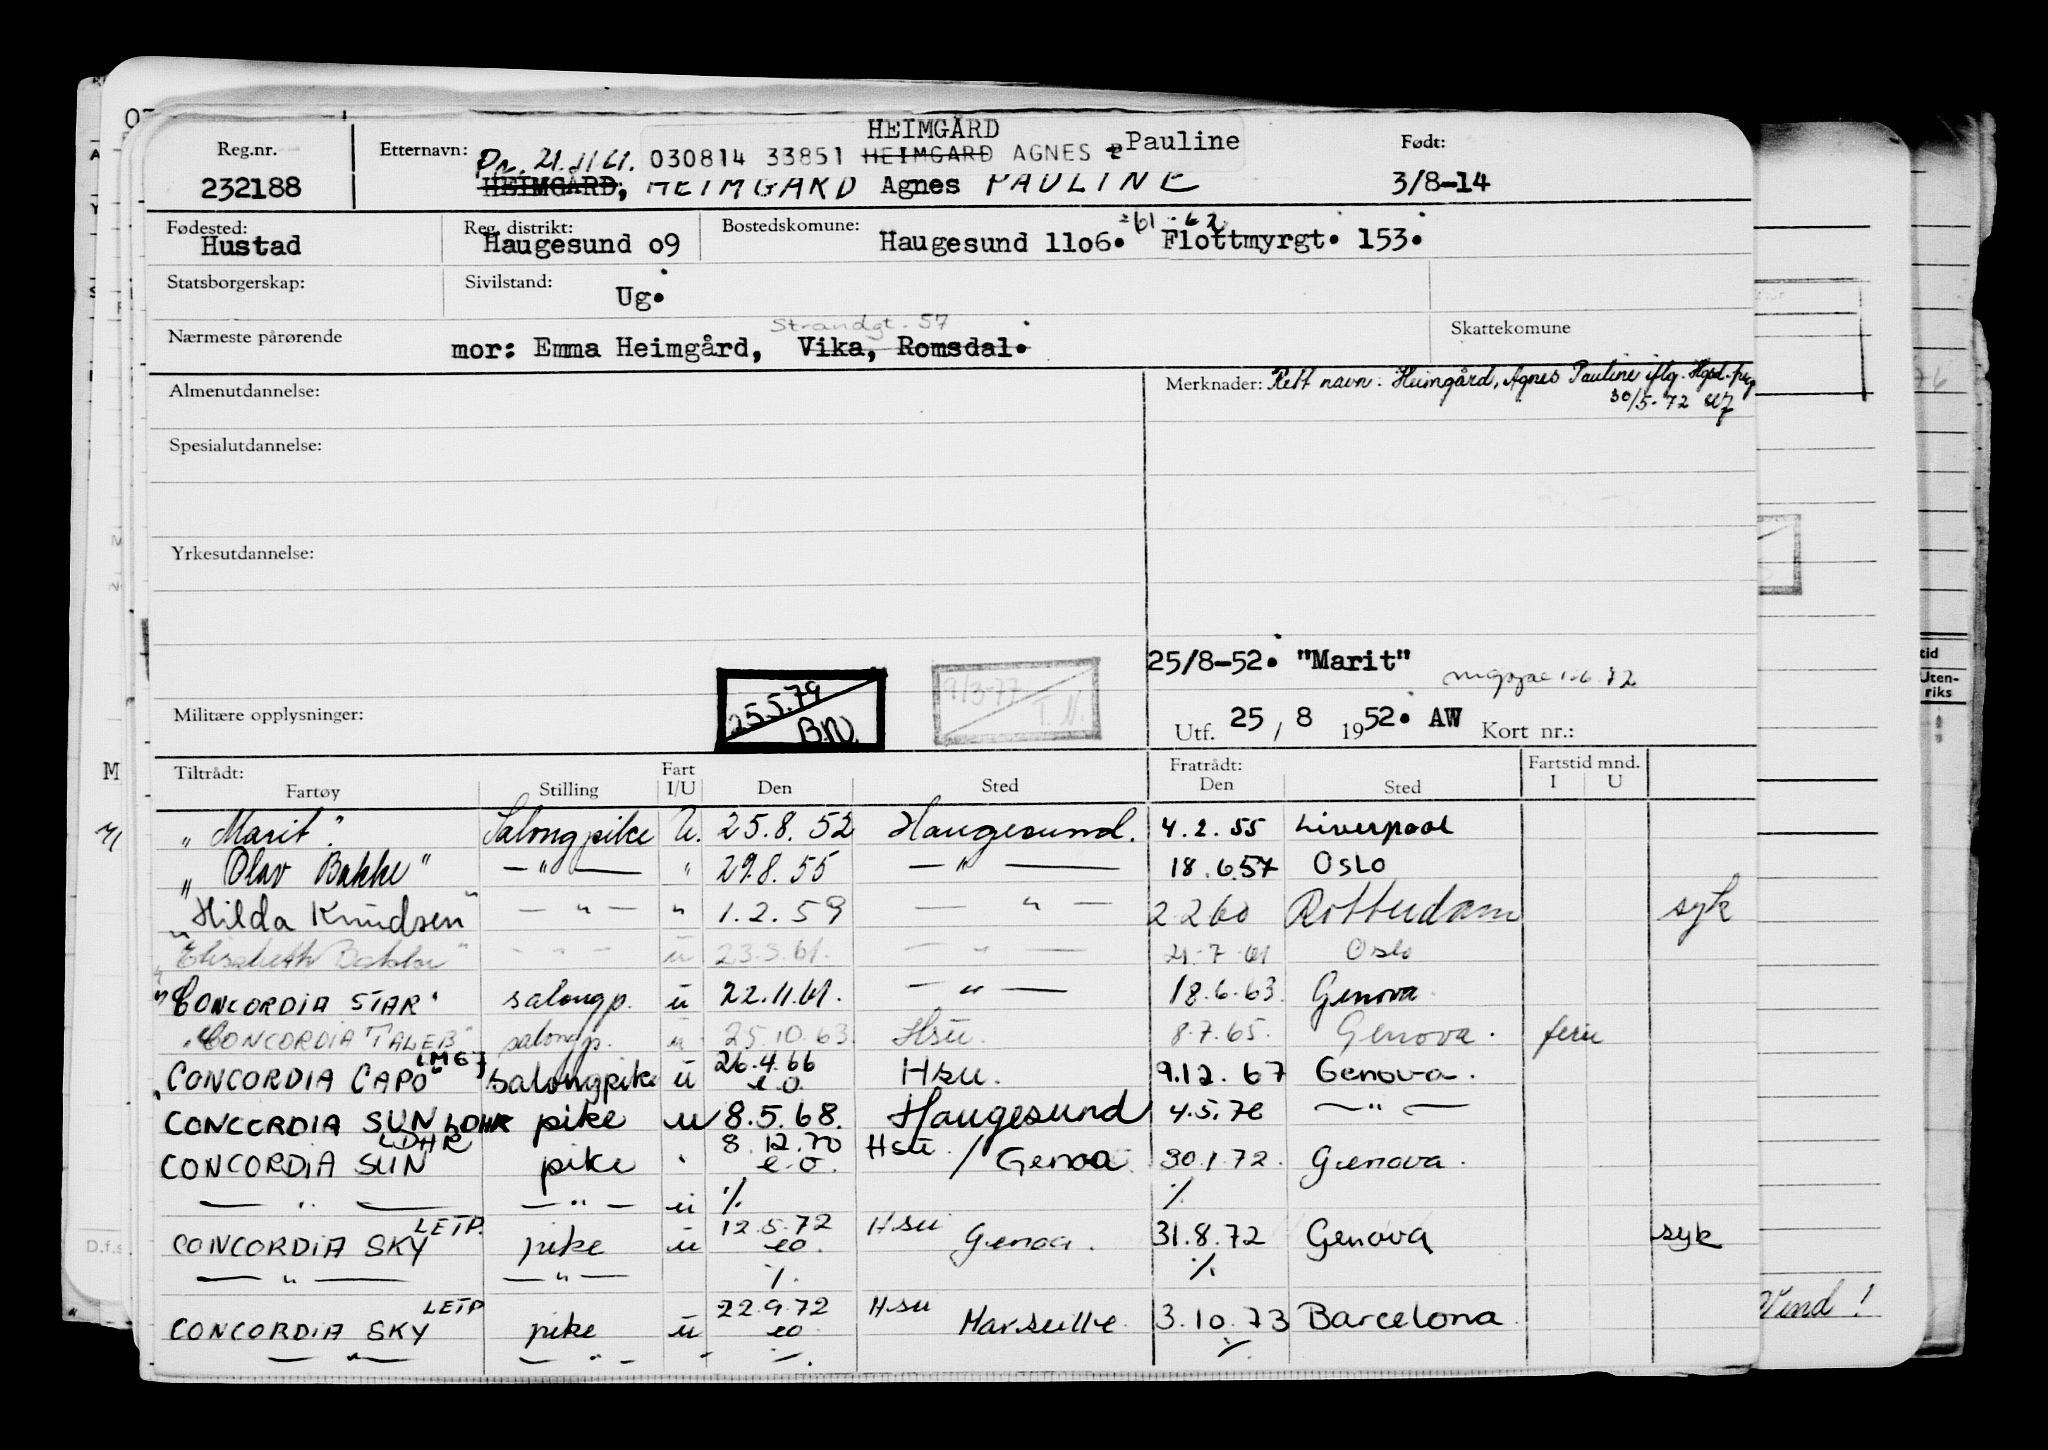 HEIMGÅRD
Reg.nr. Etternavn: Pn. 21.11.61. 030814 33851 HEIMGARD AGNES Pauline Født:
232188 HEIMGÅRD, HEIMGARD Agnes PAULINE 3/8-14
Fødested: Reg. distrikt: Bostedskomune: 61-62
Hustad Haugesund o9 Haugesund 11o6. Flottmyrgt. 153.
Statsborgerskap: Sivilstand:
Ug.
Strandgt. 57
Nærmeste pårørende Skattekomune
mor: Emma Heimgård, Vika, Romsdal.
Almenutdannelse: Merknader: Rett navn: Heimgård, Agnes Pauline iflg. Hgsd.
30/5-72
Spesialutdannelse:
Yrkesutdannelse:
25/8-52. "Marit"
25.5.79 9/3-77
B.N. T.N.
Militære opplysninger: Utf. 25 / 8 1952. AW Kort nr.:
Tiltrådt: Fart Fratrådt: Fartstid mnd.
Fartøy Stilling I/U Den Sted Den Sted I U
"Marit" Salongpike U. 25.8.52 Haugesund. 4.2.55 Liverpool
"Olav Bakke" — " — " 29.8.55 — " — 18.6.57 OSLO
"Hilda Knudsen" — " — " 1.2.59 — " — 2 2 60 Rotterdam syk
"Elisabeth Bakke" - " - ü 23.3.61. — " — 21.7.61 Oslo
"CONCORDIA STAR" salongp. ü 22.11.61. — " — 18.6.63. Genova.
"CONCORDIA TALEB" salongp. ü 25.10.63 Hsu. 8.7.65. Genova. ferie
LMGJ
"CONCORDIA CAPO" salongpike ü 26.4.66 e.o. Hsu. 9.12.67 Genova.
CONCORDIA SUN LDHR pike u 8.5.68. Haugesund 4.5.70 — " —
LDHR
CONCORDIA SUN pike " 8.12.70 e.o. Hsu / Genoa 30.1.72. Genova.
— " — — " — ü % %
LETP.
CONCORDIA SKY pike ü 12.5.72 eo. Hsu Genoa. 31.8.72 Genova syk
— " — — " — %. %
LETP
CONCORDIA SKY pike ü 22.9.72 eo. Hsu Marseille. 3.10.73 Barcelona.
— " — — " — " %. %
Vend!
M
D.f.s
tid
Uten-
riks